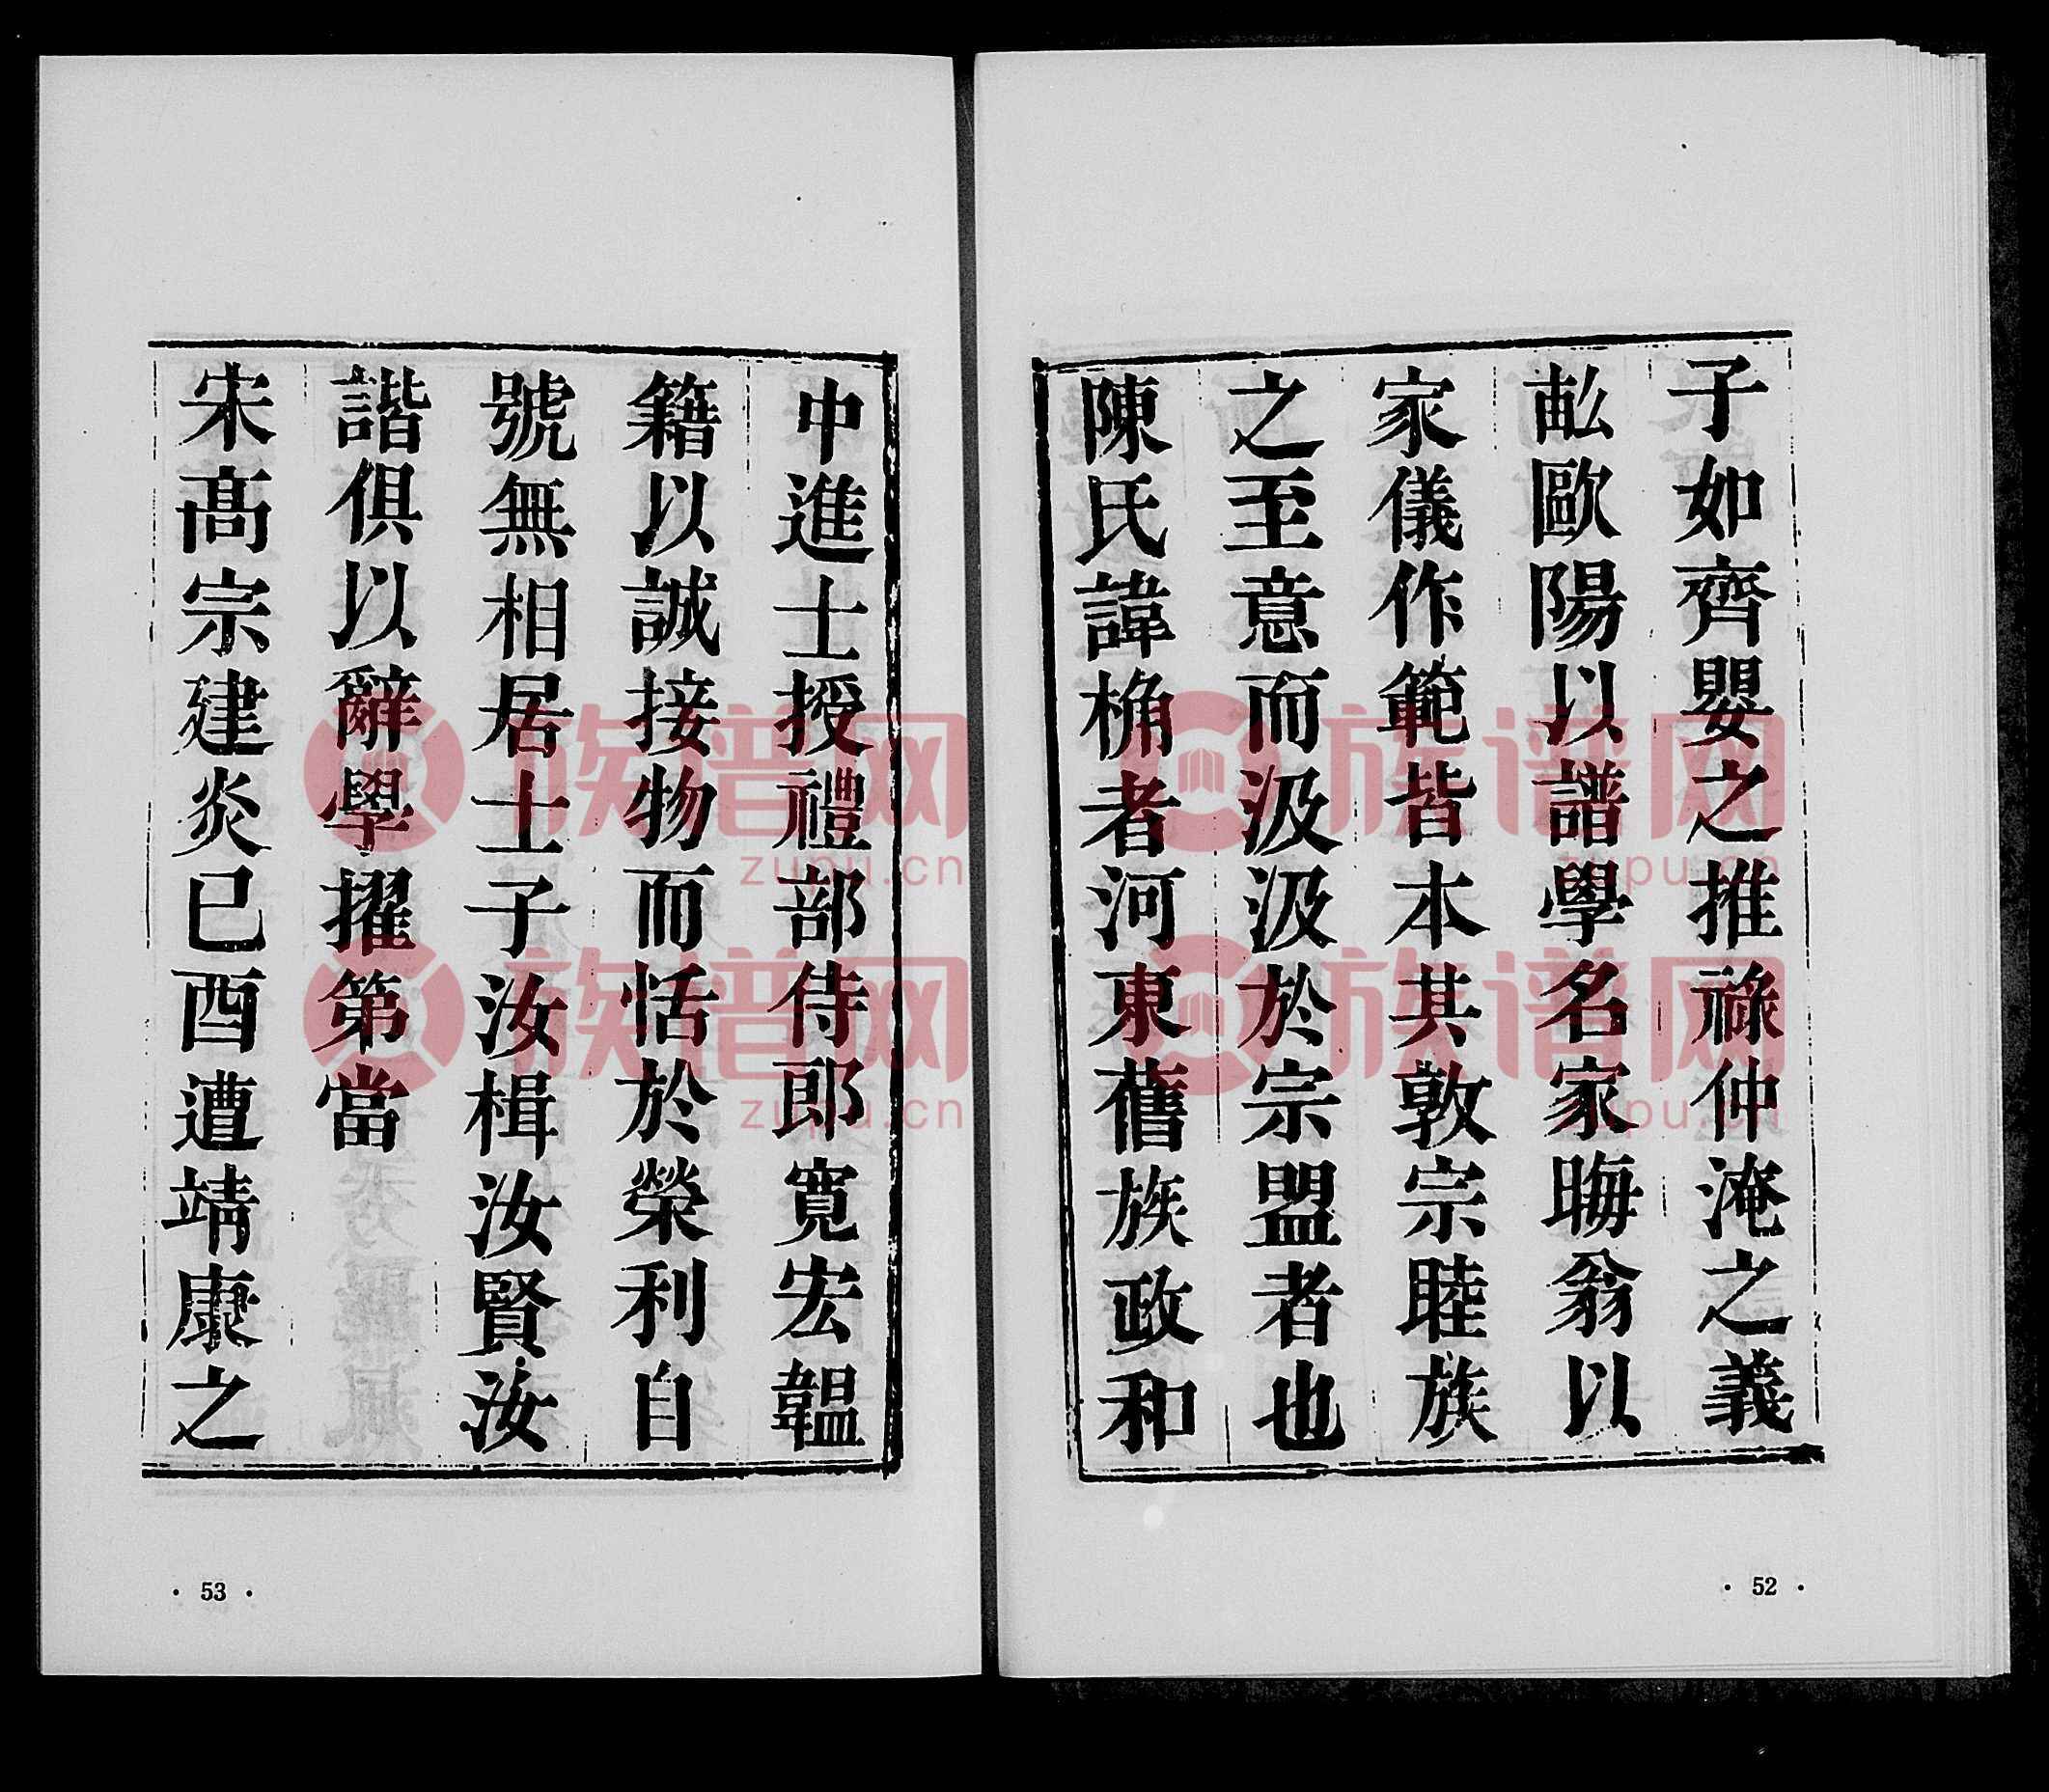 子如齊嬰之推祿仲淹之義
畝歐陽以譜學名家晦翁以
家儀作範皆本其敦宗睦族
之至意而汲汲於宗盟者也
陳氏諱桷者河東舊族政和
· 52 ·
中進士授禮部侍郎寬宏韞
籍以誠接物而恬於榮利自
號無相居士子汝楫汝賢汝
諧俱以辭學擢第當
宋高宗建炎已酉遭靖康之
· 53 ·
族谱网
zupu.cn
族谱网
zupu.cn
族谱网
zupu.cn
族谱网
zupu.cn